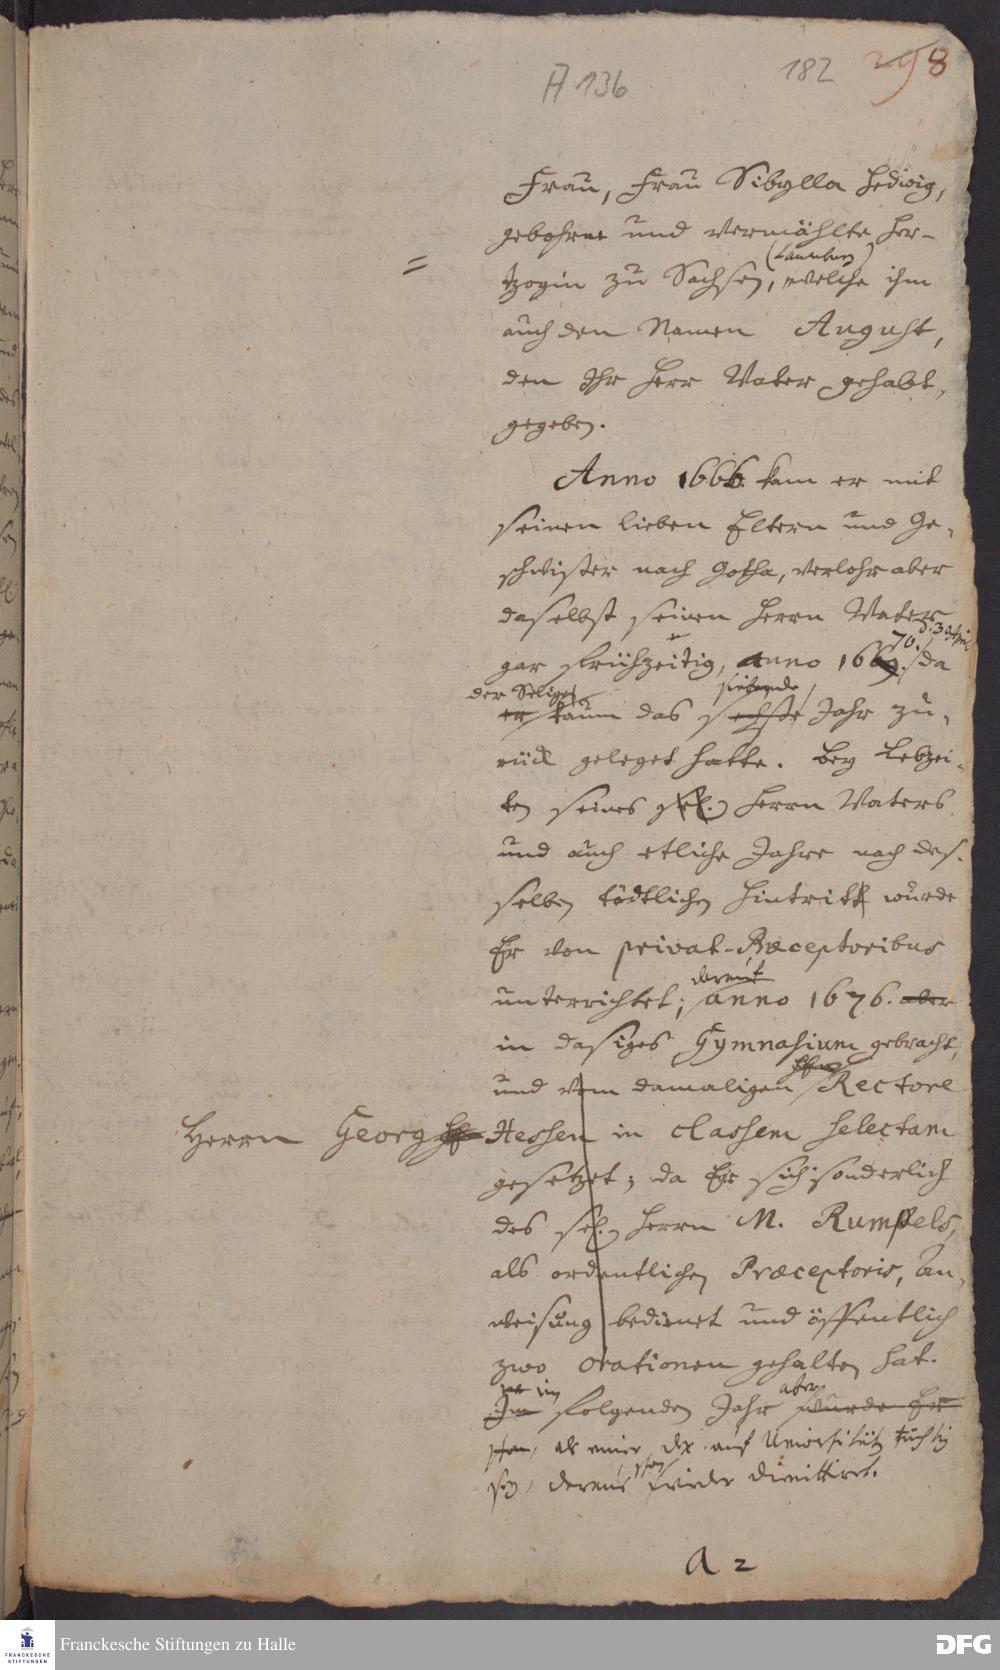 A 136
182
298
Frau, Frau Sibylla Hedwig,
gebohrne und vermählte Her-
(Lauenburg)
tzogin zu Sachsen, welche ihm
auch den Namen August,
den Ihr Herr Vater gehabt,
gegeben.
Anno 1666. kam er mit
seinen lieben Eltern und Ge-
schwister nach Gotha, verlohr aber
daselbst seinen Herrn Vater
70. d. 3 April
gar frühzeitig, anno 1669. da
der Selige siebende
er kaum das sechste Jahr zu-
rück geleget hatte. Bey Lebzei-
ten seines Herrn Vaters
und auch etliche Jahre nach des-
selben tödtlichen Hintritt wurde
Er von privat-Præceptoribus
darauf
unterrichtet; anno 1676. aber
in dasiges Gymnasium gebracht,
und vom damaligen Rectore
Herrn Georg Hessen in classem selectam
gesetzet; da Er sich sonderlich
des sel. Herrn M. Rumpels,
als ordentlichen Præceptoris, An-
weisung bedienet und öffentlich
zwo orationen gehalten hat.
im aber
Im folgenden Jahr wurde Er
schon, als einer, der auf Universitäten tüchtig
sey, schon wieder dimittiret.
a 2
FRANCKESCHE STIFTUNGEN
Franckesche Stiftungen zu Halle
DFG